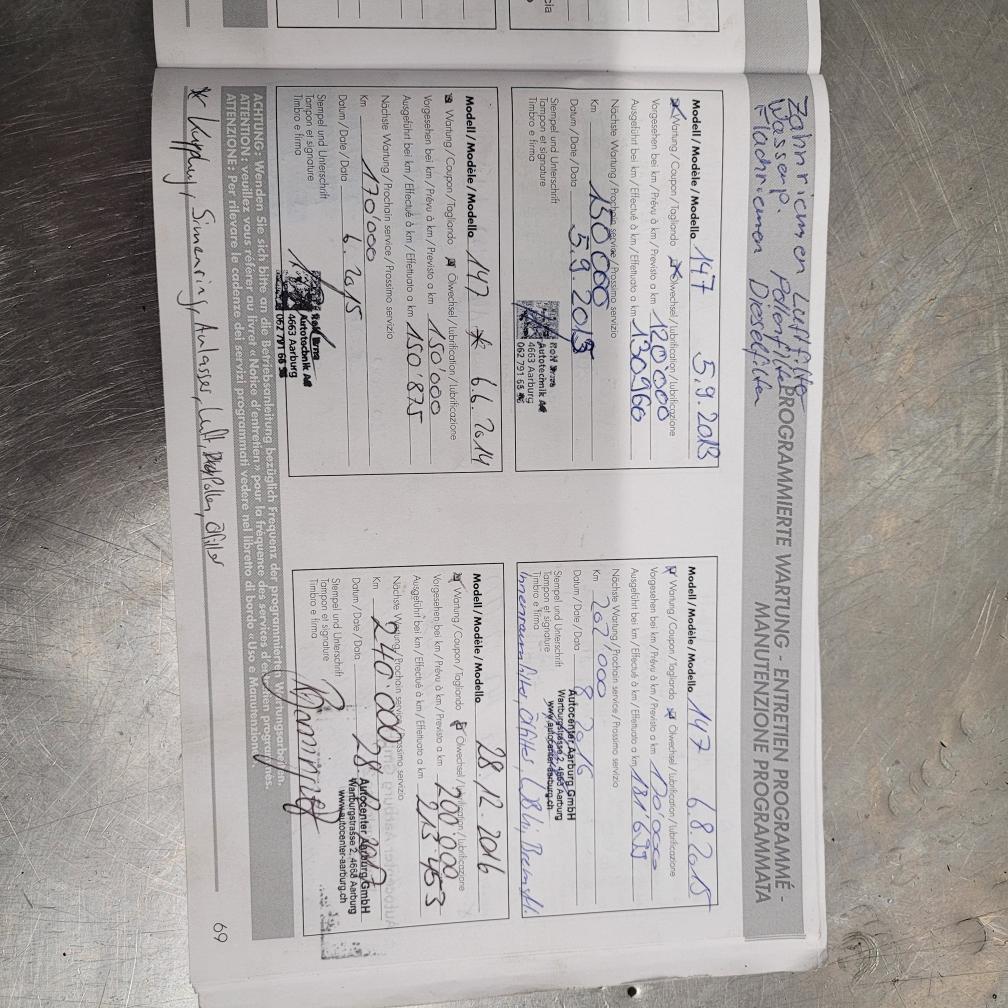 Zahnriemen Luftfilter
Wasserp. Pollenfilter
Flachriemen Dieselfilter
PROGRAMMIERTE WARTUNG - ENTRETIEN PROGRAMMÉ -
MANUTENZIONE PROGRAMMATA
Modell / Modèle / Modello 147 5.9.2013
Wartung / Coupon / Tagliando Ölwechsel / Lubrification / Lubrificazione
Vorgesehen bei km / Prévu à km / Previsto a km 120'000
Ausgeführt bei km / Effectué à km / Effettuato a km 130'960
Nächste Wartung / Prochain service / Prossimo servizio
Km 150'000
Datum / Date / Data 5.9.2015
Stempel und Unterschrift
Tampon et signature
Timbro e firma
Autotechnik AG
4663 Aarburg
062 791 68
Modell / Modèle / Modello 147 * 6.6.2014
Wartung / Coupon / Tagliando Ölwechsel / Lubrification / Lubrificazione
Vorgesehen bei km / Prévu à km / Previsto a km 150'000
Ausgeführt bei km / Effectué à km / Effettuato a km 150'875
Nächste Wartung / Prochain service / Prossimo servizio
Km 170'000
Datum / Date / Data 6.2015
Stempel und Unterschrift
Tampon et signature
Timbro e firma
Autotechnik AG
4663 Aarburg
062 791 68
Modell / Modèle / Modello 147 6.8.2015
Wartung / Coupon / Tagliando Ölwechsel / Lubrification / Lubrificazione
Vorgesehen bei km / Prévu à km / Previsto a km 170'000
Ausgeführt bei km / Effectué à km / Effettuato a km 181'699
Nächste Wartung / Prochain service / Prossimo servizio
Km 202'000
Datum / Date / Data 8.2016
Stempel und Unterschrift
Tampon et signature
Timbro e firma
Autocenter Aarburg GmbH
Wartburgstrasse 2, 4663 Aarburg
www.autocenter-aarburg.ch
Innenraumfilter, Ölfilter
Modell / Modèle / Modello 28.12.2016
Wartung / Coupon / Tagliando Ölwechsel / Lubrification / Lubrificazione
Vorgesehen bei km / Prévu à km / Previsto a km 200'000
Ausgeführt bei km / Effectué à km / Effettuato a km 213'453
Nächste Wartung / Prochain service / Prossimo servizio
Km 240'000
Datum / Date / Data
Stempel und Unterschrift
Tampon et signature
Timbro e firma
Autocenter Aarburg GmbH
Wartburgstrasse 2, 4663 Aarburg
www.autocenter-aarburg.ch
ACHTUNG: Wenden Sie sich bitte an die Betriebsanleitung bezüglich Frequenz der programmierten Wartungsarbeiten.
ATTENTION: veuillez vous référer au livret «Notice d'entretien» pour la fréquence des services d'entretien programmés.
ATTENZIONE: Per rilevare le cadenze dei servizi programmati vedere nel libretto di bordo «Uso e Manutenzione
* Kupplung, Simering, Anlasser, Luft, Pollen, Ölfilter
69